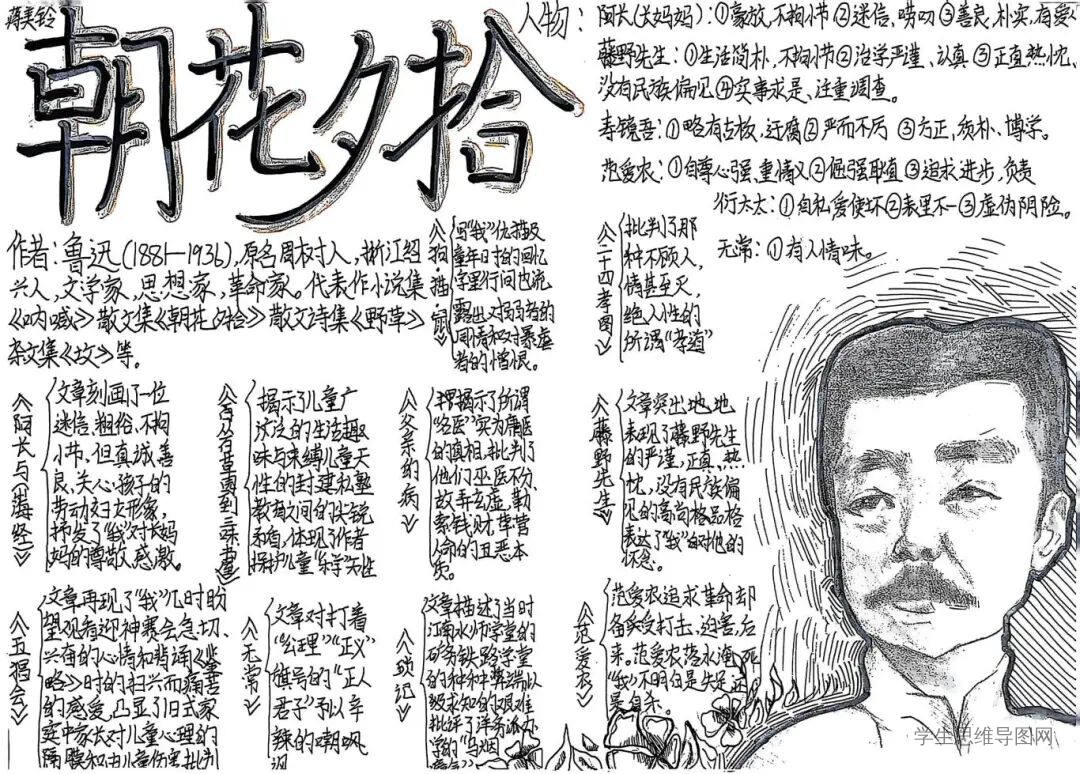 蒋美铃
朝花夕拾
人物：
阿长(长妈妈)：①豪放，不拘小节 ②迷信，唠叨 ③善良，朴实，有爱心
藤野先生：①生活简朴，不拘小节 ②治学严谨、认真 ③正直热忱，
没有民族偏见 ④实事求是、注重调查。
寿镜吾：①略有古板，迂腐 ②严而不厉 ③方正，质朴、博学。
范爱农：①自尊心强，重情义 ②倔强耿直 ③追求进步，负责
衍太太：①自私爱使坏 ②表里不一 ③虚伪阴险。
无常：①有人情味。
作者：鲁迅(1881—1936)，原名周树人，浙江绍
兴人，文学家，思想家，革命家。代表作小说集
《呐喊》散文集《朝花夕拾》散文诗集《野草》
杂文集《坟》等。
《狗·猫·鼠》
写"我"仇猫及
童年日拾的回忆
字里行间也流
露出对弱者的
同情和对暴虐
者的憎恨。
《二十四孝图》
批判了那
种不顾人，
情甚至灭，
绝人性的
所谓"孝道"
《阿长与《山海经》》
文章刻画了一位
迷信，粗俗、不拘
小节，但真诚善
良、关心孩子的
劳动妇女形象，
抒发了"我"对长妈
妈的尊敬、感激。
《从百草园到三味书屋》
揭示了儿童广
泛的生活趣
味与束缚儿童天
性的封建私塾
教育之间的尖锐
矛盾，体现了作者
保护儿童"乐学"天性
《父亲的病》
揭示了所谓
"名医"实为庸医
的真相，批判了
他们巫医不分、
故弄玄虚，勒
索钱财，草菅
人命的丑恶本
质。
《藤野先生》
文章突出地，地
表现了藤野先生
的严谨，正直，热
忱，没有民族偏
见的高尚格品格
表达了"我"对他的
怀念。
《五猖会》
文章再现了"我"儿时盼
望观看迎神赛会急切、
兴奋的心情和背诵《鉴
略》时的扫兴而痛苦
的感受，凸显了旧式家
庭中家长对儿童心理的
隔膜和对儿童伤害，批判
《无常》
文章对打着
"公理""正义"
旗号的"正人
君子"予以辛
辣的嘲讽
《琐记》
文章描述了当时
江南水师学堂的
矿务铁路学堂
的种种弊端以
级求知的艰难
批评了洋务派办
学的"乌烟
《范爱农》
范爱农追求革命却
备受打击，迫害，后
来。范爱农落水淹死
"我"不明白是失足还
是自杀。
学生思维导图网